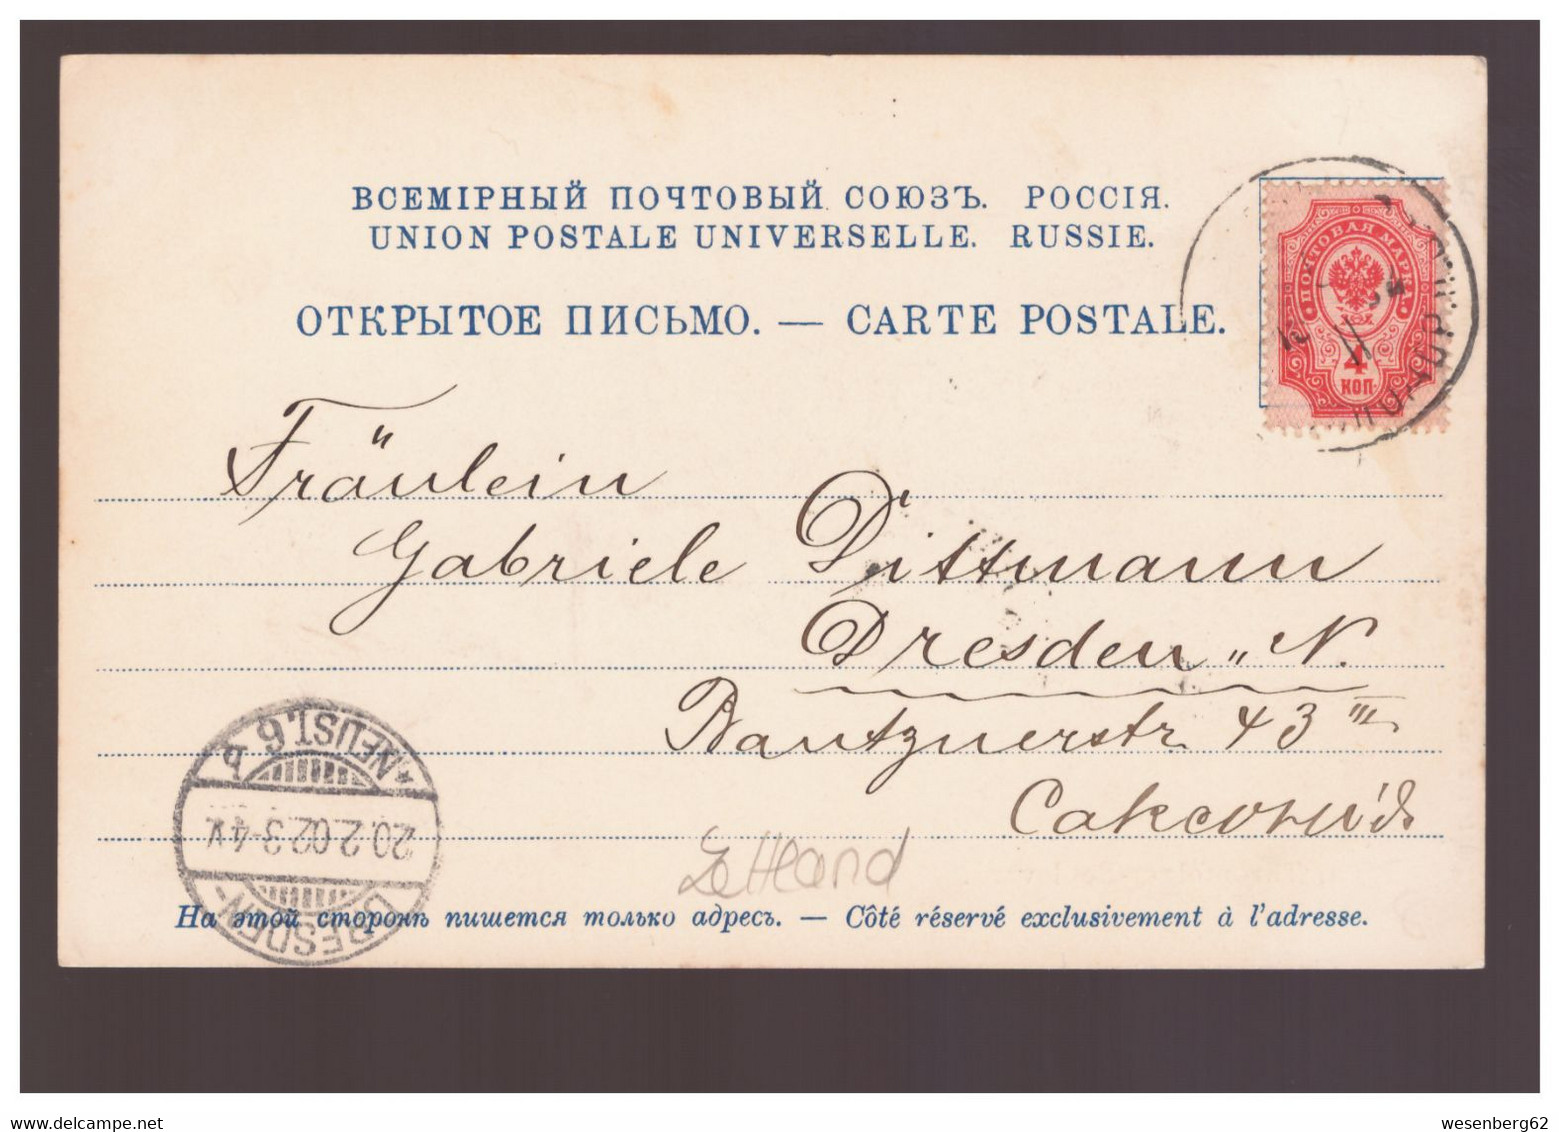 ВСЕМІРНЫЙ ПОЧТОВЫЙ СОЮЗЪ. РОССІЯ.
UNION POSTALE UNIVERSELLE. RUSSIE.
ОТКРЫТОЕ ПИСЬМО. — CARTE POSTALE.
ПОЧТОВАЯ МАРКА
4
КОП.
Fräulein
Gabriele Dittmann
Dresden „ N.
Bautznerstr 43 III
Саксонія
Lettland
* NEUST. 6 b
20.2.02. 3-4 V
DRESDEN-
На этой сторонѣ пишется только адресъ. — Côté réservé exclusivement à l'adresse.
wesenberg62